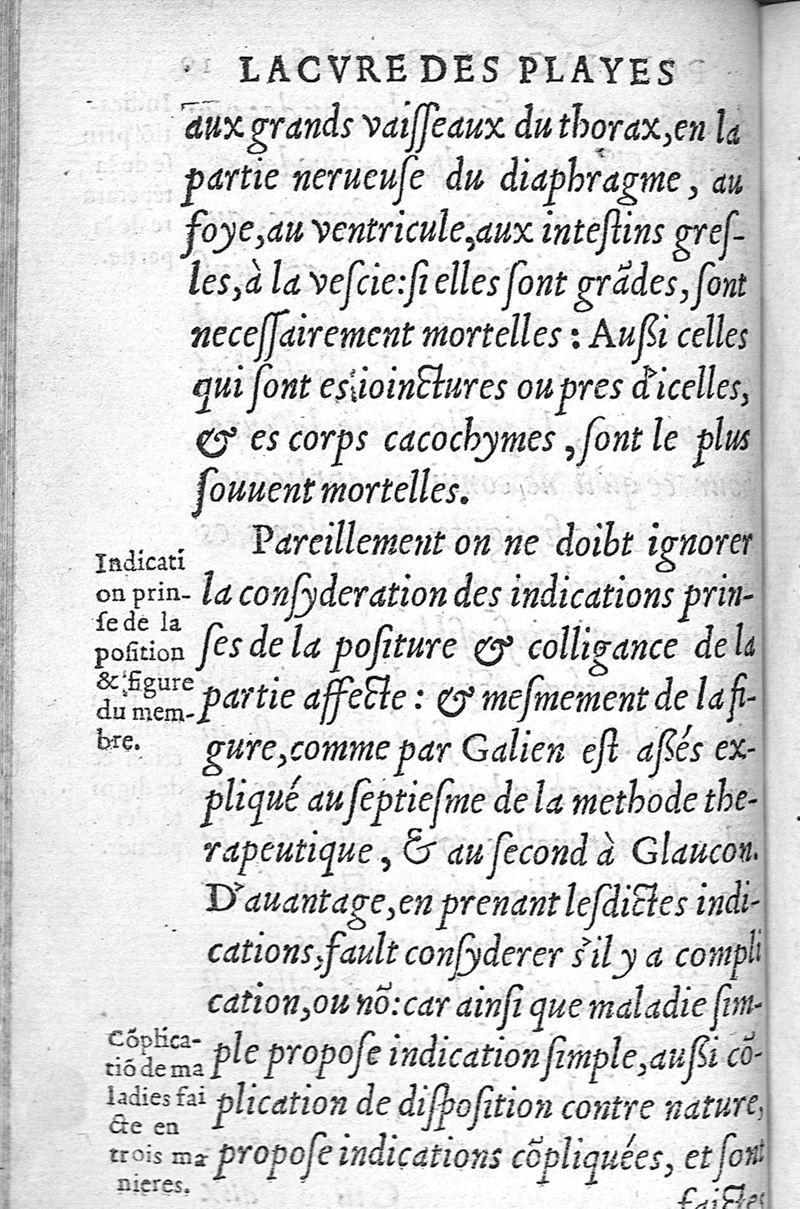 LA CVRE DES PLAYES
aux grands vaiſſeaux du thorax, en la
partie nerueuſe du diaphragme, au
foye, au ventricule, aux inteſtins greſ-
les, à la veſcie: ſi elles ſont grãdes, ſont
neceſſairement mortelles : Außi celles
qui ſont es ioinctures ou pres d'icelles,
& es corps cacochymes, ſont le plus
ſouuent mortelles.
Pareillement on ne doibt ignorer
la conſyderation des indications prin-
ſes de la poſiture & colligance de la
partie affecte : & meſmement de la fi-
gure, comme par Galien eſt aßés ex-
pliqué au ſeptieſme de la methode the-
rapeutique, & au ſecond à Glaucon.
D'auantage, en prenant leſdictes indi-
cations, fault conſyderer s'il y a compli
cation, ou nõ: car ainſi que maladie ſim-
ple propoſe indication ſimple, außi cõ-
plication de diſpoſition contre nature,
propoſe indications cõpliquées, et ſont
faictes
Indicati
on prin-
ſe de la
poſition
& figure
du mem-
bre.
Cõplica-
tiõ de ma
ladies fai
cte en
trois ma
nieres.